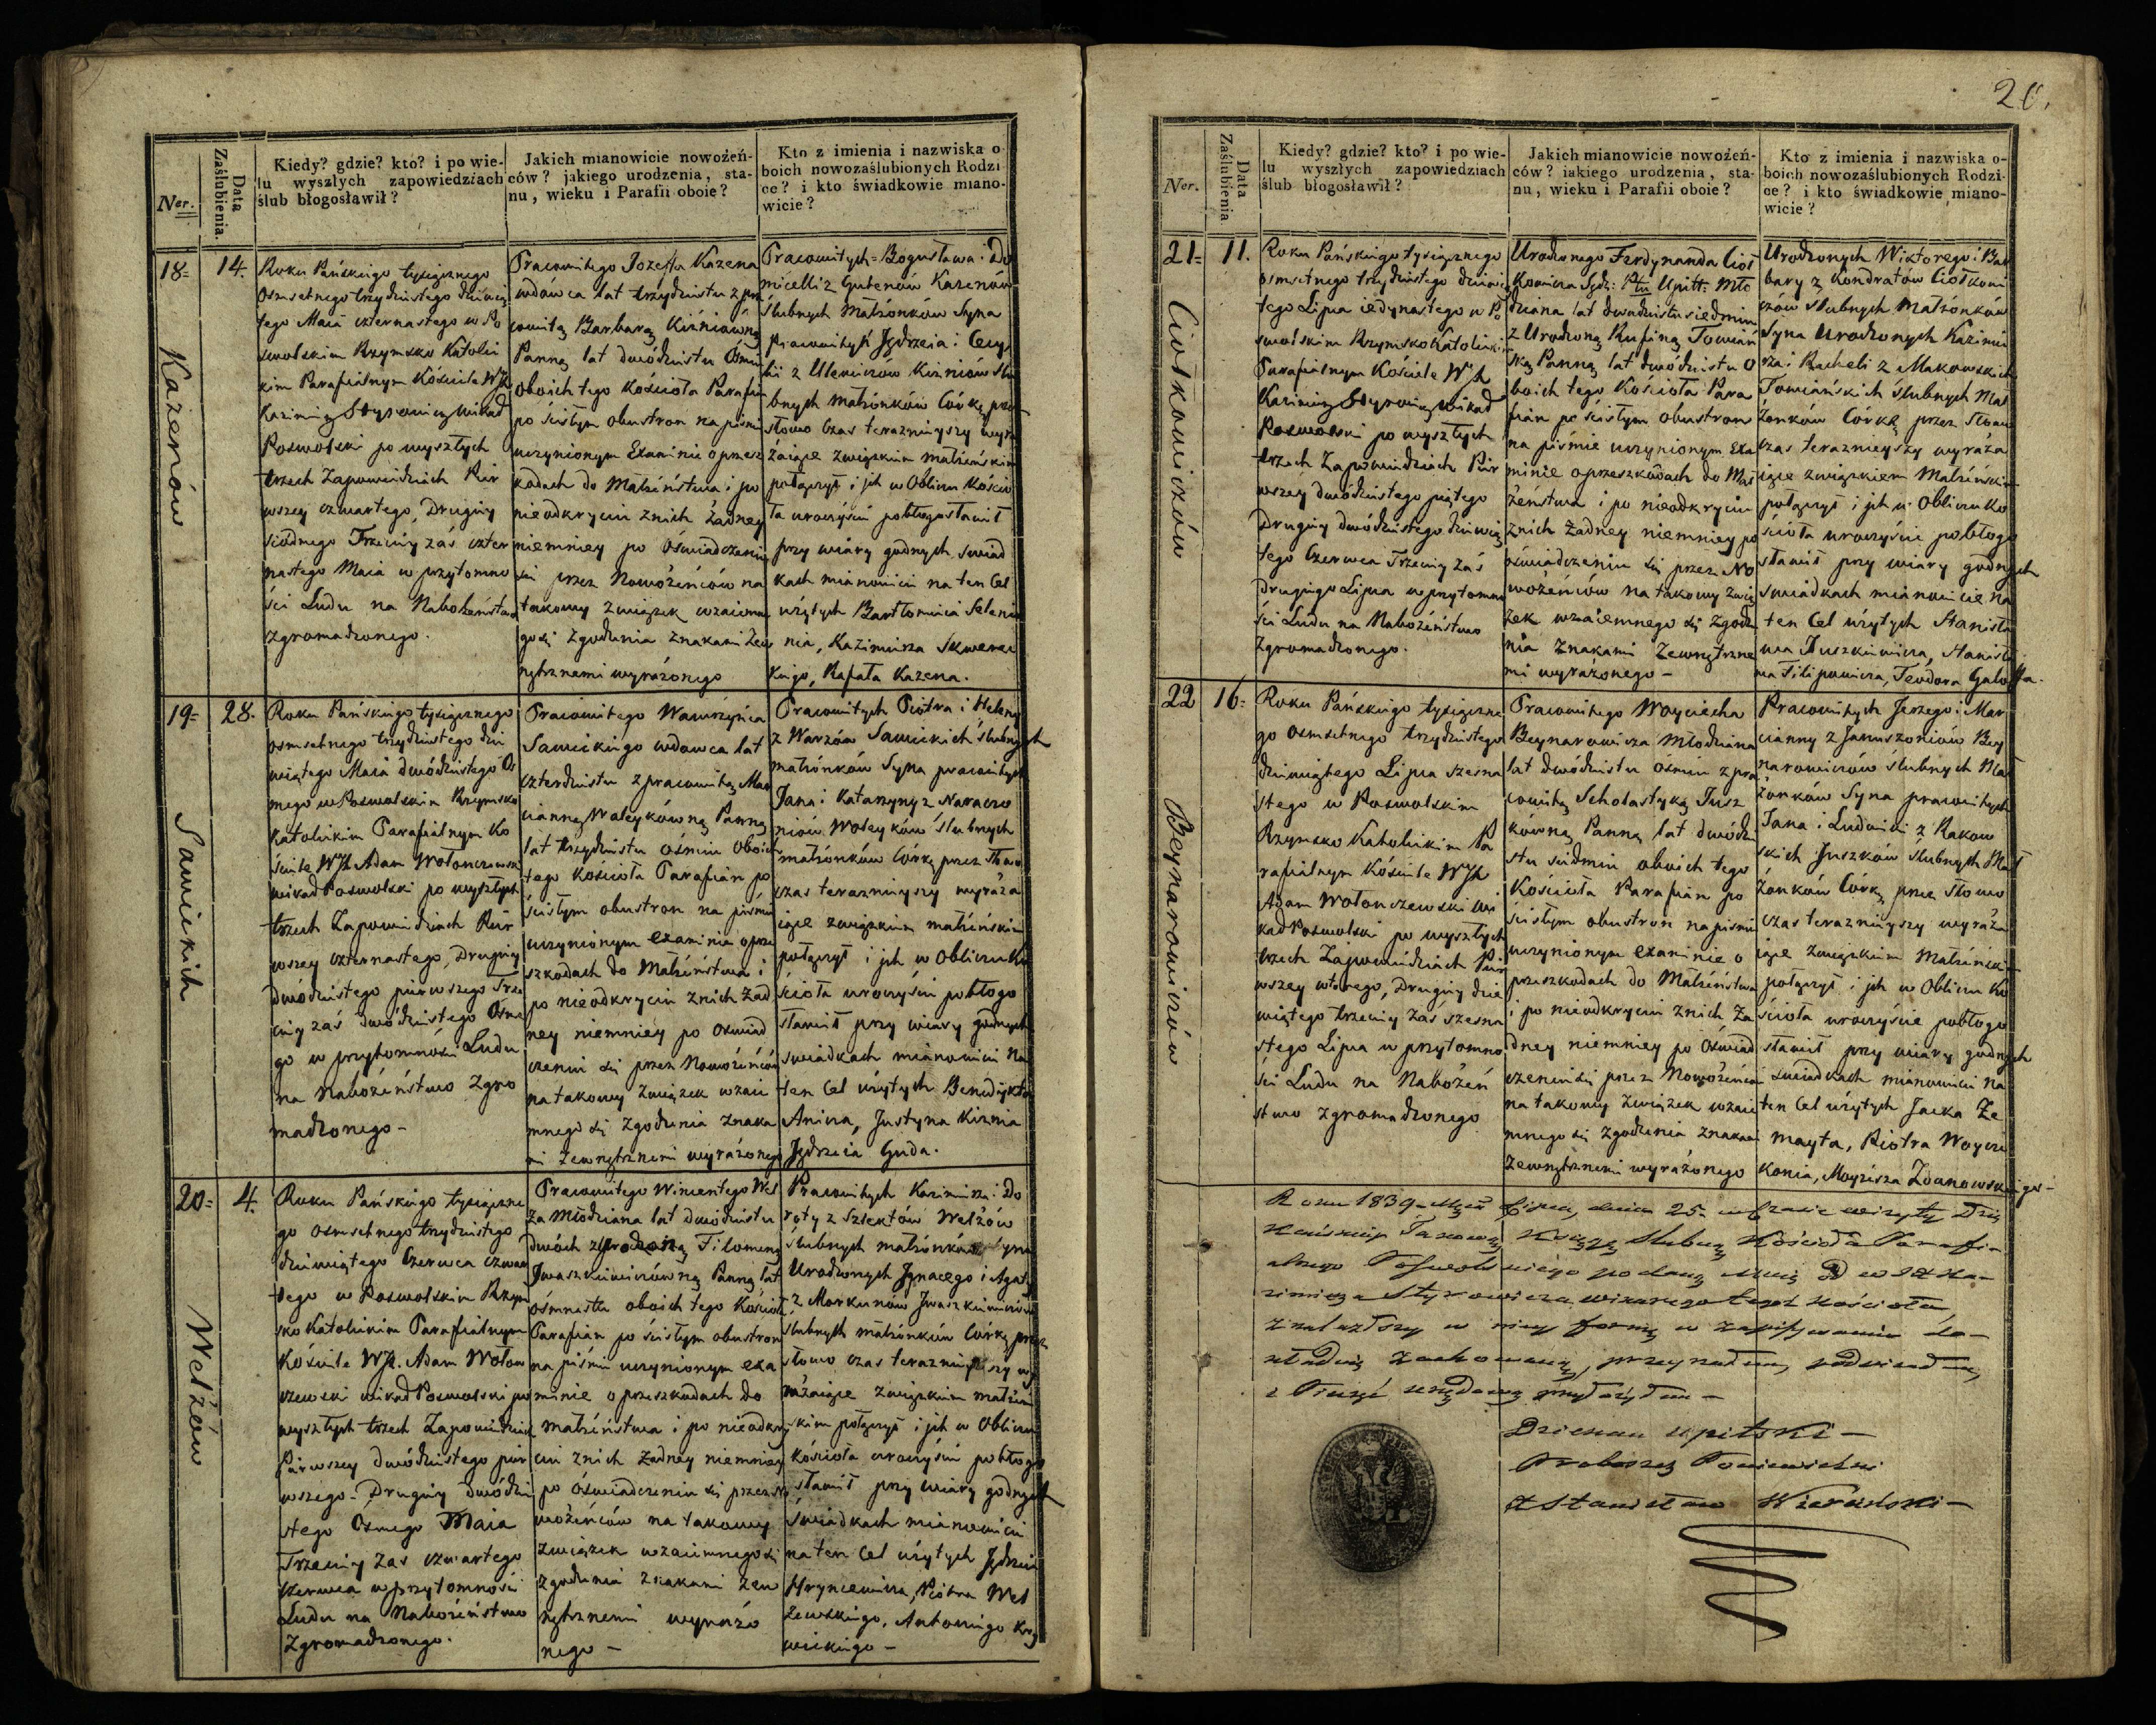 Ner.
Data
Zaślubienia.
Kiedy? gdzie? kto? i po wie-
lu wyszłych zapowiedziach
ślub błogosławił?
Jakich mianowicie nowożeń-
ców? jakiego urodzenia, sta-
nu, wieku i Parafii oboie?
Kto z imienia i nazwiska o-
boich nowozaślubionych Rodzi-
ce? i kto świadkowie miano-
wicie?
18=
14.
Kazenów
Roku Pańskiego tysiącznego
Osmsetnego trzydziestego dziewią
tego Maia czternastego w Po
swolskim Rzymsko Katolic
kim Parafialnym Kościele WJX
Kazimierz Styrowicz wikar
Poswolski po wyszłych
trzech Zapowiedziach Pier
wszey czwartego, Drugiey
siódmego Trzeciey zaś czter
nastego Maia w przytomno
ści Ludu na Nabożeństwo
zgromadzonego.
Pracowitego Jozeffa Kazena
wdowca lat trzydziestu z pra
cowitą Barbarą Kiźniówną
Panną lat dwódziestu Ośmiu
oboich tego Kościoła Parafian
po ścisłym obustron na piśmie
uczynionym Examinie o przesz
kodach do Małżeństwa i po
nieodkryciu z nich żadney
niemniey po Oświadczeniu
się przez Nowożeńców na
takowy związek wzaiemne
go się zgodzenia znakami Zew
nętrznemi wyrażonego
Pracowitych Bogusława i Do
micelli z Gutenów Kazenów
Ślubnych Małżonków Syna
pracowitych Jędrzeia i Cecy
lii z Uleniczów Kiźniów Ślu
bnych małżonków Córkę przez
słowo Czas teraznieyszy wyra
żaiące związkiem małżeńskim
połączył i ich w Obliczu Kościo
ła uroczyście pobłogosławił
przy wiary godnych świad
kach mianowicie na ten Cel
użytych Bartłomieia Selenia
nia, Kazimierza Skwerec
kiego, Rafała Kazena.
19=
28.
Sawickich
Roku Pańskiego tysiącznego
osmsetnego trzydziestego dzie
wiątego Maia dwódziestego Os
mego w Poswolskim Rzymsko
Katolickim Parafialnym Ko
ściele WJX Adam Wołonczewski
wikar Poswolski po wyszłych
trzech Zapowiedziach Pier
wszey czternastego, Drugiey
dwódziestego pierwszego Trze
ciey zaś dwódziestego Osme
go w przytomności Ludu
na Nabożeństwo Zgro
madzonego-
Pracowitego Wawrzyńca
Sawickiego wdowca lat
czterdziestu z pracowitą Mar
cianną Waleykówną Panną
lat trzydziestu ośmiu Oboich
tego Kościoła Parafian po
ścisłym obustron na piśmie
uczynionym examinie o prze
szkodach do Małżeństwa i
po nieodkryciu z nich żad
ney niemniey po Oświad
czeniu się przez Nowożeńców
na takowy związek wzaie
mnego się zgodzenia znaka
mi zewnętrznemi wyrażonego
Pracowitych Piotra i Heleny
z Warzów Sawickich Ślubnych
małżonków Syna pracowitych
Jana i Katarzyny z
Waleyków Ślubnych
małżonków Córkę przez Słowo
czas teraznieyszy wyraża
iące związkiem małżeńskim
połączył i ich w Obliczu Ko
ścioła uroczyście pobłogo
sławił przy wiary godnych
świadkach mianowicie na
ten Cel użytych Benedykta
Jędrzeia Guda.
20=
4.
Welżów
Roku Pańskiego tysiączne
go osmsetnego trzydziestego
dziewiątego Czerwca Czwar
tego w Poswolskim Rzym
sko Katolickim Parafialnym
Kościele WJX. Adam Wołon
czewski wikar Poswolski po
wyszłych trzech Zapowiedziach
Pierwszey dwódziestego pier
wszego- Drugiey dwódzie
stego Osmego Maia
Trzeciey zaś czwartego
Czerwca w przytomności
Ludu na Nabożeństwo
Zgromadzonego.
Pracowitego Wincentego Wel
ża Młodziana lat dwódziestu
dwóch z Urodzoną Filomeną
Jwaszkiewiczówną Panną lat
ośmnastu oboich tego Kościoła
Parafian po ścisłym obustron
na piśmie uczynionym exa
minie o przeszkodach do
małżeństwa i po nieodkry
ciu z nich żadney niemniey
po Oświadczeniu się przez No
wożeńców na takowy
związek wzaiemnego się
zgodzenia znakami zew
nętrznemi wyrażo
nego-
Pracowitych Kazimierza i Do
roty z Szlektów Welżów
ślubnych małżonków Syna
Urodzonych Jgnacego i Agaty
z Morkunów Jwaszkiewiczów
Ślubnych małżonków Córkę przez
słowo czas teraznieyszy wy
rażaiące związkiem małżeń
skim połączył i ich w Obliczu
Kościoła uroczyście pobłogo
sławił przy wiary godnych
Świadkach mianowicie
na ten Cel użytych Jędrzeia
Hryncewicza, Piotra Wel
żewskiego, Antoniego
20.
Ner.
Data
Zaślubienia
Kiedy? gdzie? kto? i po wie-
lu wyszłych zapowiedziach
ślub błogosławił?
Jakich mianowicie nowożeń-
ców? iakiego urodzenia, sta-
nu, wieku i Parafii oboie?
Kto z imienia i nazwiska o-
boich nowozaślubionych Rodzi-
ce? i kto świadkowie miano-
wicie?
21=
11.
Ciołkowiczów
Roku Pańskiego tysiącznego
osmsetnego trzydziestego dziewią
tego Lipca iedynastego w Po
swolskim Rzymsko Katolickim
Parafialnym Kościele WJX
Kazimierz Styrowicz wikar
Poswolski po wyszłych
trzech Zapowiedziach Pier
wszey dwódziestego piątego
Drugiey dwódziestego dziewią
tego Czerwca Trzeciey zaś
drugiego Lipca w przytomno
ści Ludu na Nabożeństwo
Zgromadzonego.
Urodzonego Ferdynanda Cioł
kowicza Sędz: Ptu Upitt: Mło
dziana lat dwudziestu siedmiu
z Urodzoną Rufiną Towiań
ską Panną lat dwódziestu O
boich tego Kościoła Para
fian po ścisłym obustron
na piśmie uczynionym Exa
minie o przeszkodach do Mał
żeństwa i po nieodkryciu
z nich żadney niemniey po
oświadczeniu się przez No
wożeńców na takowy Zwią
zek wzaiemnego się zgodze
nia znakami Zewnętrzne
mi wyrażonego-
Urodzonych Wiktorego i Bar
bary z Kondratów Ciołkowi
czów Ślubnych Małżonków
Syna Urodzonych Kazimie
rza i Racheli z Makowskich
Towiańskich ślubnych Mał
żonków Córkę przez Słowo
czas teraznieyszy wyraża
iące związkiem Małżeńskim
połączył i ich w Obliczu Ko
ścioła uroczyście pobłogo
sławił przy wiary godnych
świadkach mianowicie na
ten Cel użytych Stanisła
wa Juszkiewicza, Stanisła
wa Filipowicza, Teodora
22
16=
Beynarowiczów
Roku Pańskiego tysiączne
go Osmsetnego trzydziestego
dziewiątego Lipca szesna
stego w Poswolskim
Rzymsko Katolickim Pa
rafialnym Kościele WJX
Adam Wołonczewski wi
kar Poswolski po wyszłych
trzech Zapowiedziach Pier
wszey wtorego, Drugiey dzie
wiątego trzeciey zaś szesna
stego Lipca w przytomno
ści Ludu na Nabożeń
stwo zgromadzonego
Pracowitego Woyciecha
Beynarowicza Młodziana
lat dwódziestu ośmiu z pra
cowitą Scholastyką Jusz
kówną Panną lat dwódzie
stu siedmiu oboich tego
Kościoła Parafian po
ścisłym obustron na piśmie
uczynionym examinie o
przeszkodach do Małżeństwa
i po nieodkryciu z nich ża
dney niemniey po Oświad
czeniu się przez Nowożeńców
na takowy związek wzaie
mnego się zgodzenia znakami
Zewnętrznemi wyrażonego
Pracowitych Jerzego i Mar
cianny z Januszoniów Bey
narowiczów ślubnych Mał
żonków Syna pracowitych
Jana i Ludwiki z Rakow
skich Juszków ślubnych Mał
żonków Córkę przez słowo
czas teraznieyszy wyraża
iące związkiem Małżeńskim
połączył i ich w Obliczu Ko
ścioła uroczyście pobłogo
sławił przy wiary godnych
świadkach mianowicie na
ten Cel użytych Jacka Że
mayta, Piotra Woycie
konia, Moyżesza Zdanowskiego-
Roku 1839 Lipca, dnia 25. w czasie wizyty Dzie
kańskiey Xięgę Ślubną Kościoła Parafi-
alnego Poswolskiego podaną przez Ka-
zimierza Styrowicza wikarego tegoż Kościoła
znalazłszy w niey formę w zapisywaniu do-
kładnie zachowaną,
i Pieczęć urzędową przyłożyłem-
Dziekan Upitski-
Proboszcz Poniewiezki
X Stanisław